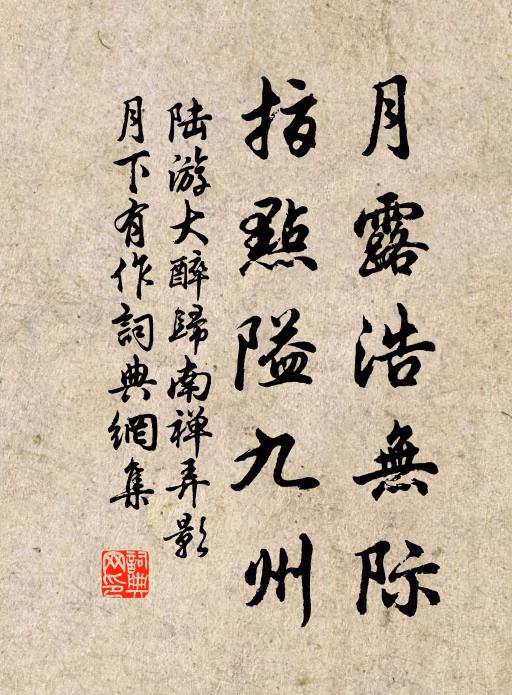 月露浩無际
指點隘九州
陆游大醉歸南禅弄影
月下有作詞典網集
詞典
网印